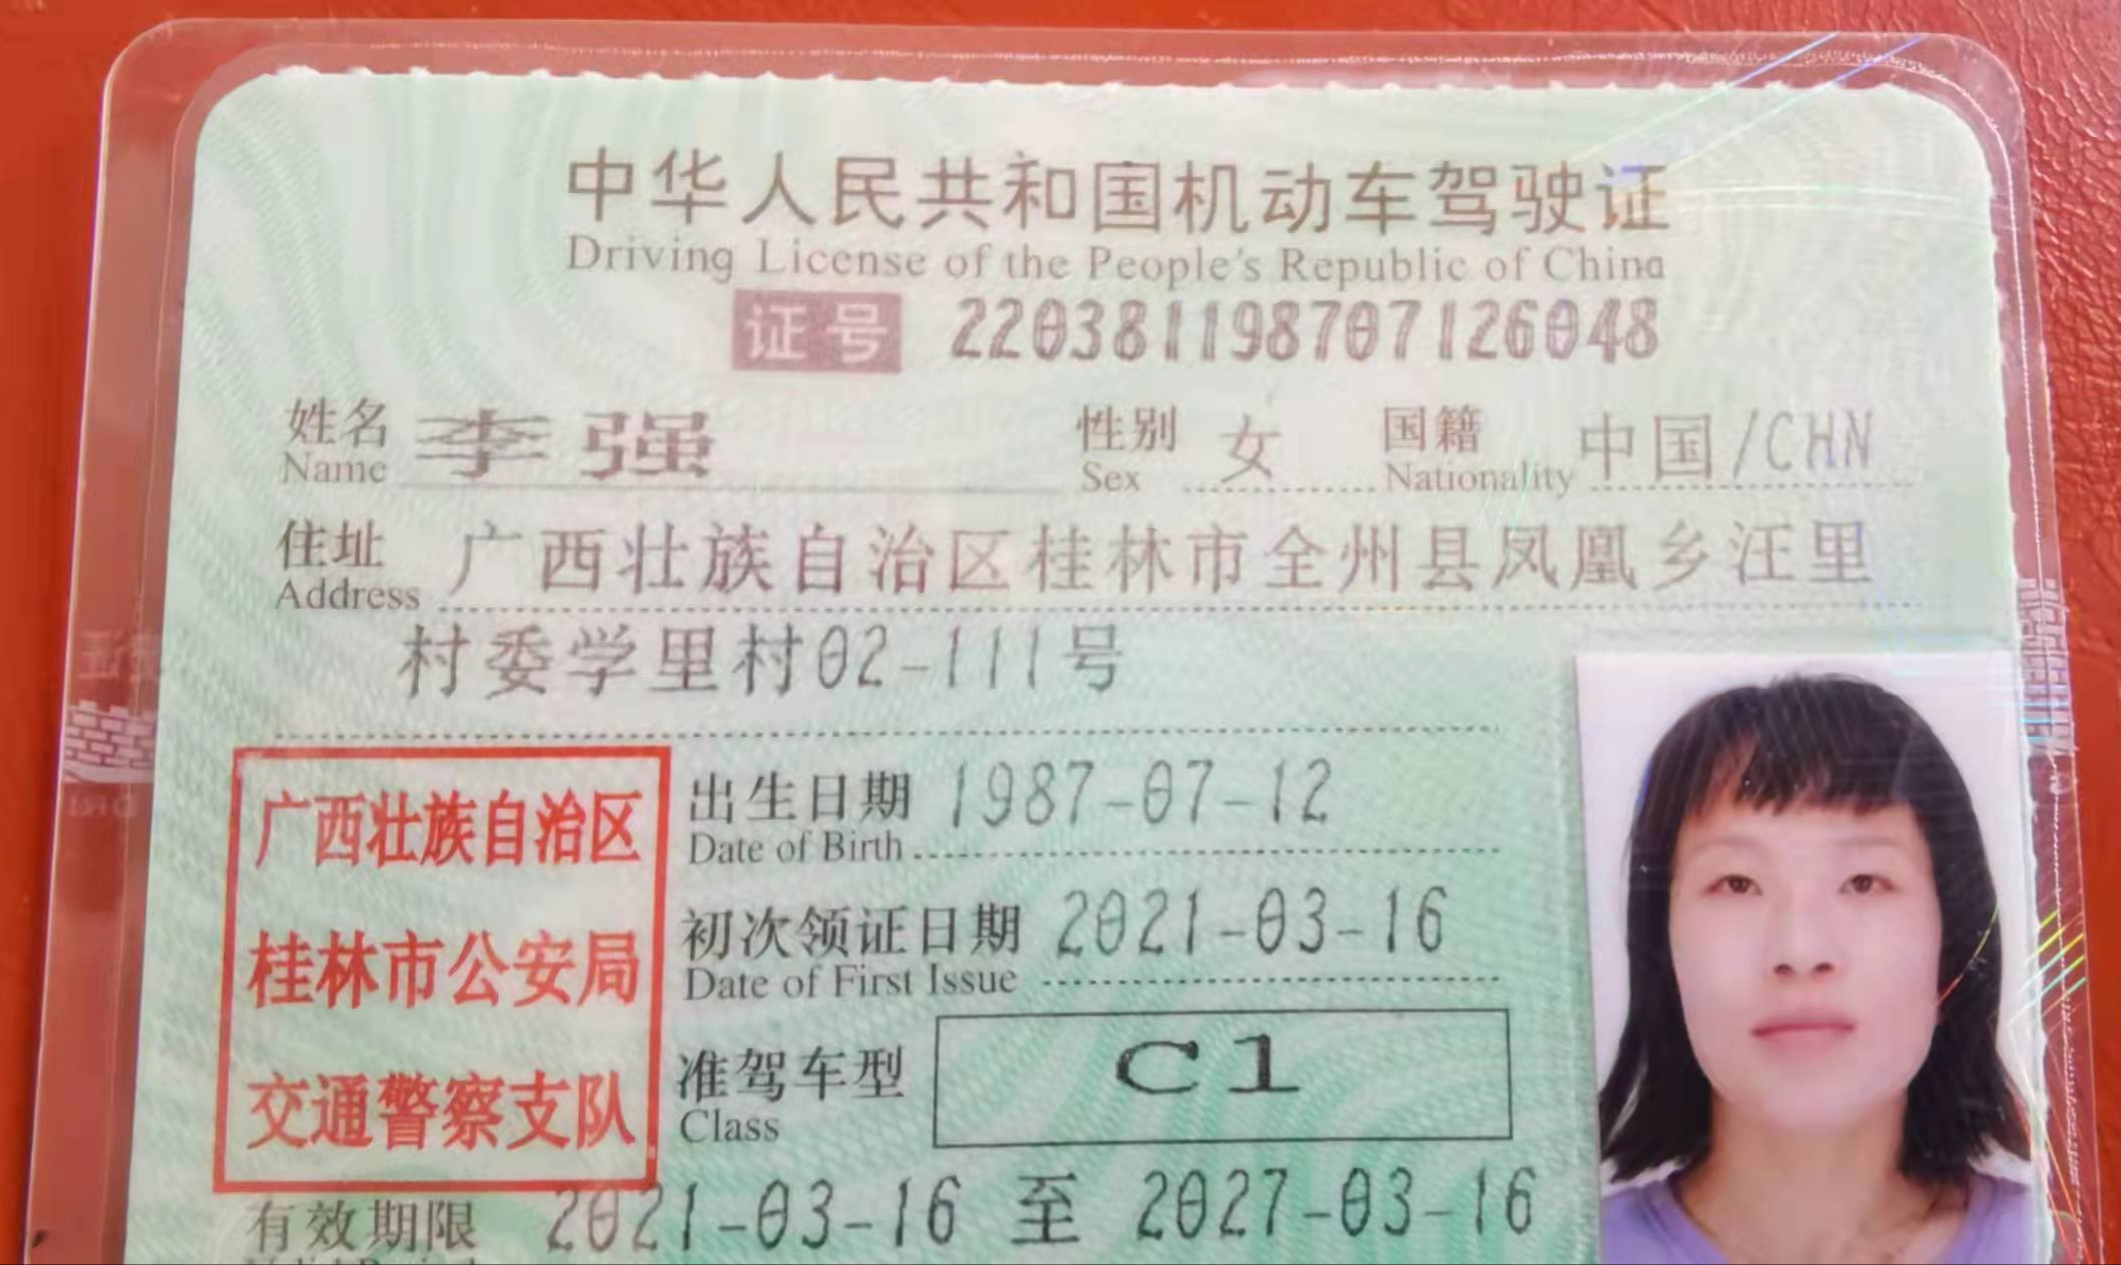 中华人民共和国机动车驾驶证
Driving License of the People's Republic of China
证号 220381198707126048
姓名 李强 性别 女 国籍 中国/CHN
Name Sex Nationality
住址 广西壮族自治区桂林市全州县凤凰乡汪里
Address
村委学里村02-111号
广西壮族自治区
桂林市公安局
交通警察支队
出生日期 1987-07-12
Date of Birth
初次领证日期 2021-03-16
Date of First Issue
准驾车型 C1
Class
有效期限 2021-03-16 至 2027-03-16